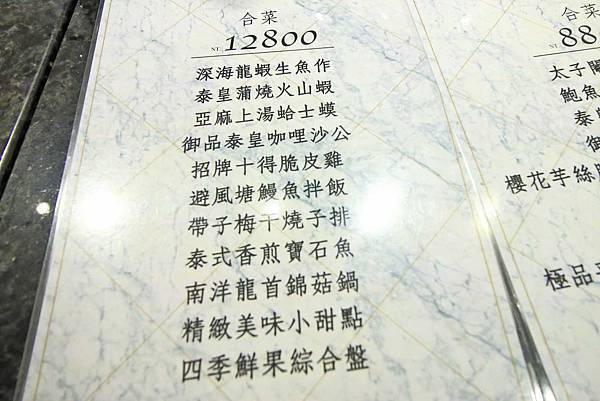 合菜
NT. 12800
深海龍蝦生魚作
泰皇蒲燒火山蝦
亞麻上湯蛤士蟆
御品泰皇咖哩沙公
招牌十得脆皮雞
避風塘鰻魚拌飯
帶子梅干燒子排
泰式香煎寶石魚
南洋龍首錦菇鍋
精緻美味小甜點
四季鮮果綜合盤
合菜
NT. 88
太子
鮑魚
泰
御
櫻花芋絲
極品